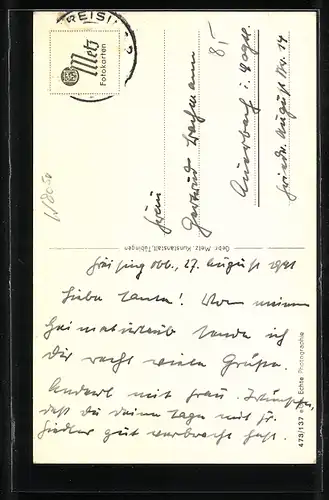 FREISI
Metz
Fotokarten
8,-
Frau
Gertrud Bachmann
Auerbach i. Vogtl.
Friedr. August Str. 14
Gebr. Metz, Kunstanstalt, Tübingen
Freising Obb., 27. August 1941
Liebe Tante! Von meinem
Heimaturlaub sende ich
Dir recht viele Grüße.
mit Frau. Wünsche,
daß Du deine Tage mit Fr.
Fiedler gut verbracht hast.
473/137 Echte Photographie